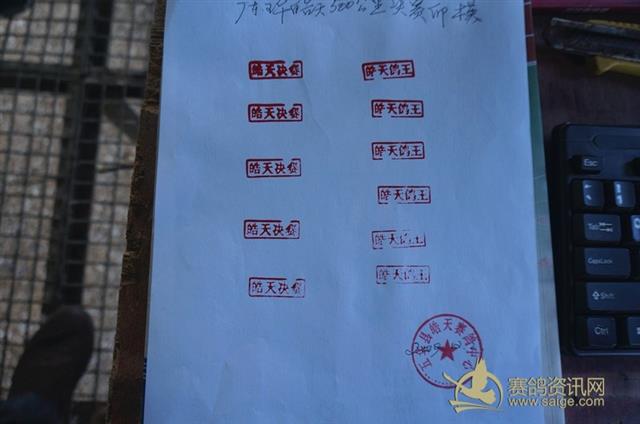 皓天500公里决赛印模
皓天决赛 皓天鸽王
皓天决赛 皓天鸽王
皓天决赛 皓天鸽王
皓天鸽王
皓天决赛 皓天鸽王
皓天决赛 皓天鸽王
县皓天赛鸽中心
赛鸽资讯网
www.saige.com
Esc
Tab
CapsLock
Shift
Ctrl